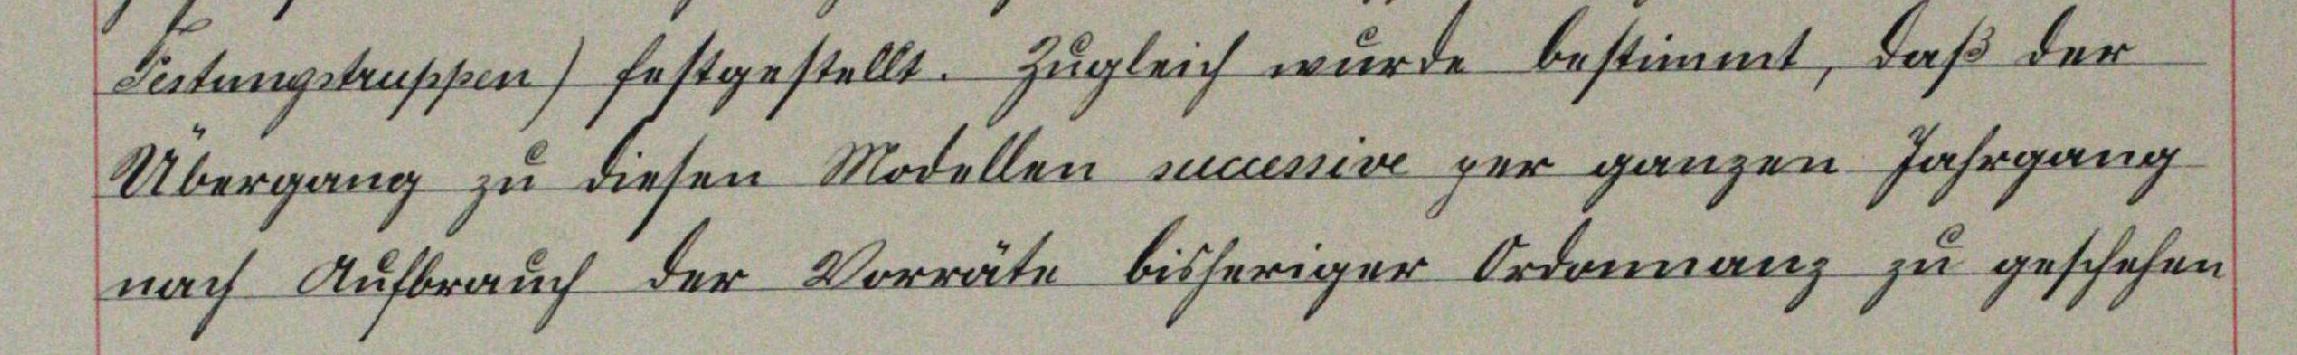 Festungstruppen) festgestellt. Zugleich wurde bestimmt, daß der
Übergang zu diesen Modellen successive per ganzen Jahrgang
nach Aufbrauch der Vorräte bisheriger Ordonnanz zu geschehen